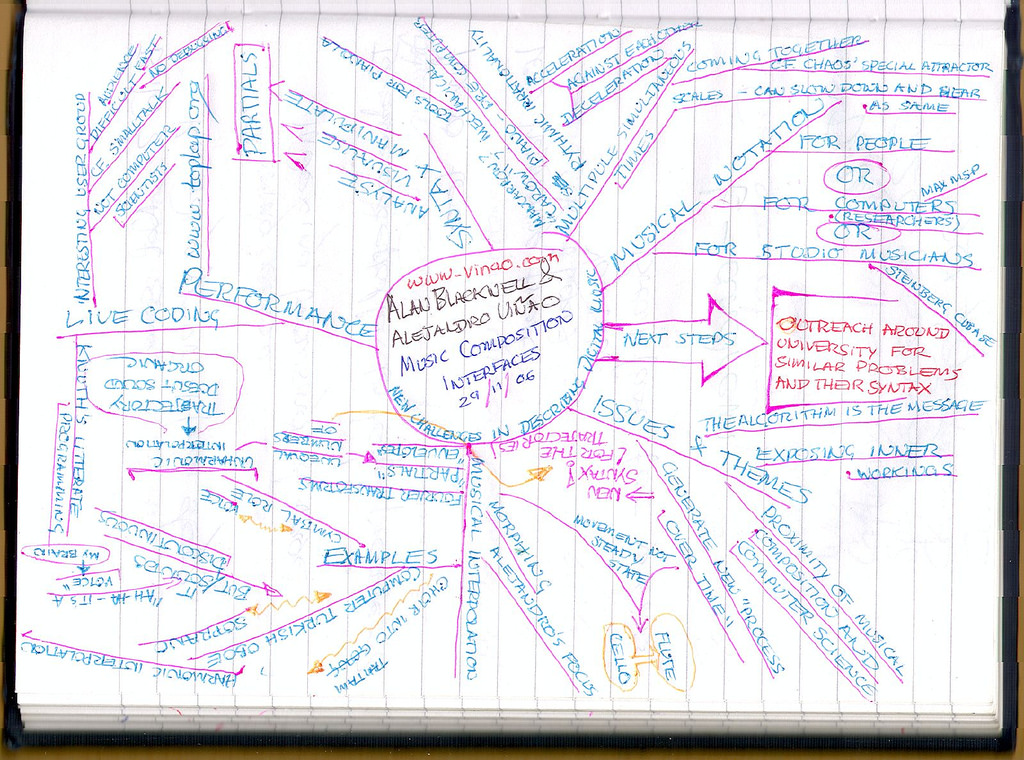 www.vinao.com
ALAN BLACKWELL &
ALEJANDRO VIÑAO
MUSIC COMPOSITION
INTERFACES
29/11/06
NEW CHALLENGES IN DESCRIBING DIGITAL
MULTIPLE SIMULTANEOUS
TIMES
COMING TOGETHER
OF CHAOS' SPECIAL ATTRACTOR
SCALES - CAN SLOW DOWN AND HEAR
AS SAME
MUSICAL NOTATION
FOR PEOPLE
OR
FOR COMPUTERS
MAX MSP
(RESEARCHERS)
OR
FOR STUDIO MUSICIANS
STEINBERG CUBASE
NEXT STEPS
OUTREACH AROUND
UNIVERSITY FOR
SIMILAR PROBLEMS
AND THEIR SYNTAX
ISSUES
+ THEMES
THE ALGORITHM IS THE MESSAGE
EXPOSING INNER
WORKINGS
PROXIMITY OF MUSICAL
COMPOSITION AND
COMPUTER SCIENCE
GENERATE NEW "PROCESS
OVER TIME"
→ NEW
SYNTAX!
(FOR THE
TRAJECTORIES)
MUSICAL INTERPOLATION
MORPHING
ALEJANDRO'S FOCUS
MOVEMENT NOT
STEADY
STATE
CELLO
FLUTE
FOURIER TRANSFORMS
"PARTIALS"
ENVELOPES
UNEQUAL
NUMBERS
OF
UNHARMONIC
INTERPOLATION
TRAJECTORY
DOESN'T SOUND
ORGANIC
EXAMPLES
CYMBAL ROLE
VOICE
BUT SOUNDS
DISCONTINUOUS
"AH-HA - IT'S A
VOICE"
MY BRAIN
COMPUTER TURKISH OBOE
SOPRANO
HARMONIC INTERPOLATION
CHOIR INTO
PERFORMANCE
www.toplap.org
LIVE CODING
KNUTH'S LITERATE
PROGRAMMING
INTERESTING USER GROUP
AUDIENCE
DIFFICULT FAST
NO DEBUGGING
OF SMALLTALK
NOT COMPUTER
SCIENTISTS
SYNTAX
ANALYSE
VISUALISE
+ MANIPULATE
PARTIALS
TOOLS FOR PIANOLA
MECHANICAL
PIANO - PRE COMPUTER
RYTHMIC IRRATIONALITY
ACCELERATION
AGAINST EACH OTHER
DECELERATION